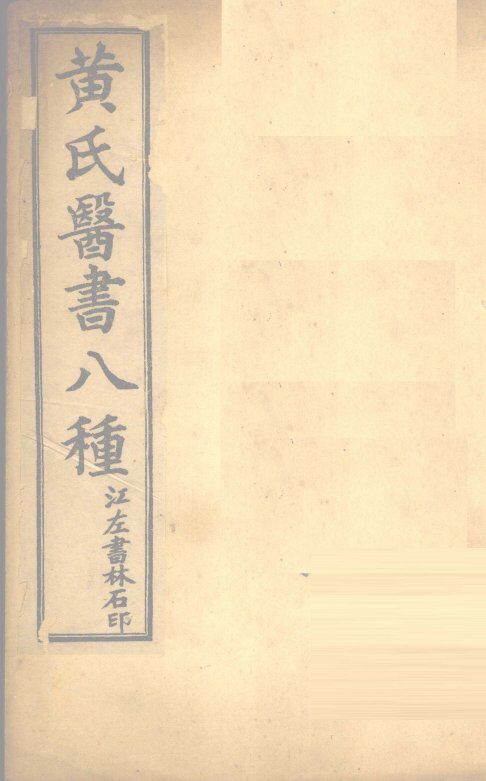 黄氏醫書八種
江左書林石印